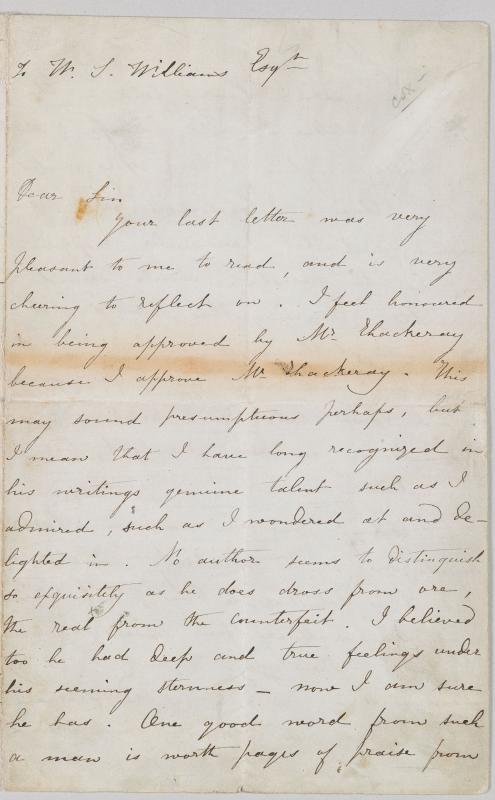 To W. S. Williams Esqre
Dear Sir
Your last letter was very
pleasant to me to read, and is very
cheering to reflect on. I feel honoured
in being approved by Mr Thackeray
because I approve Mr Thackeray. This
may sound presumptuous perhaps, but
I mean that I have long recognized in
his writings genuine talent such as I
admired, such as I wondered at and de-
lighted in. No author seems to distinguish
so exquisitely as he does dross from ore,
the real from the counterfeit. I believed
too he had deep and true feelings under
his seeming sternness — now I am sure
he has. One good word from such
a man is worth pages of praise from